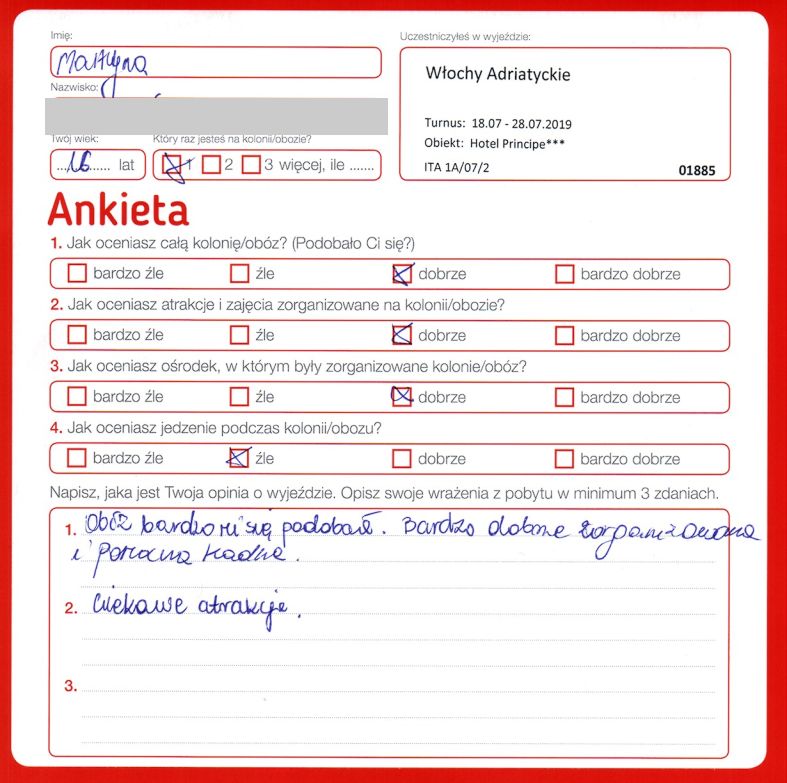 Imię:
Uczestniczyłeś w wyjeździe:
Martyna
Włochy Adriatyckie
Nazwisko:
Turnus: 18.07 - 28.07.2019
Obiekt: Hotel Principe***
ITA 1A/07/2 01885
Twój wiek: Który raz jesteś na kolonii/obozie?
16 lat 1 2 3 więcej, ile .......
Ankieta
1. Jak oceniasz całą kolonię/obóz? (Podobało Ci się?)
bardzo źle źle dobrze bardzo dobrze
2. Jak oceniasz atrakcje i zajęcia zorganizowane na kolonii/obozie?
bardzo źle źle dobrze bardzo dobrze
3. Jak oceniasz ośrodek, w którym były zorganizowane kolonie/obóz?
bardzo źle źle dobrze bardzo dobrze
4. Jak oceniasz jedzenie podczas kolonii/obozu?
bardzo źle źle dobrze bardzo dobrze
Napisz, jaka jest Twoja opinia o wyjeździe. Opisz swoje wrażenia z pobytu w minimum 3 zdaniach.
1. Obóz bardzo mi się podobał. Bardzo dobrze zorganizowana
i pomocna kadra.
2. Ciekawe atrakcje.
3.